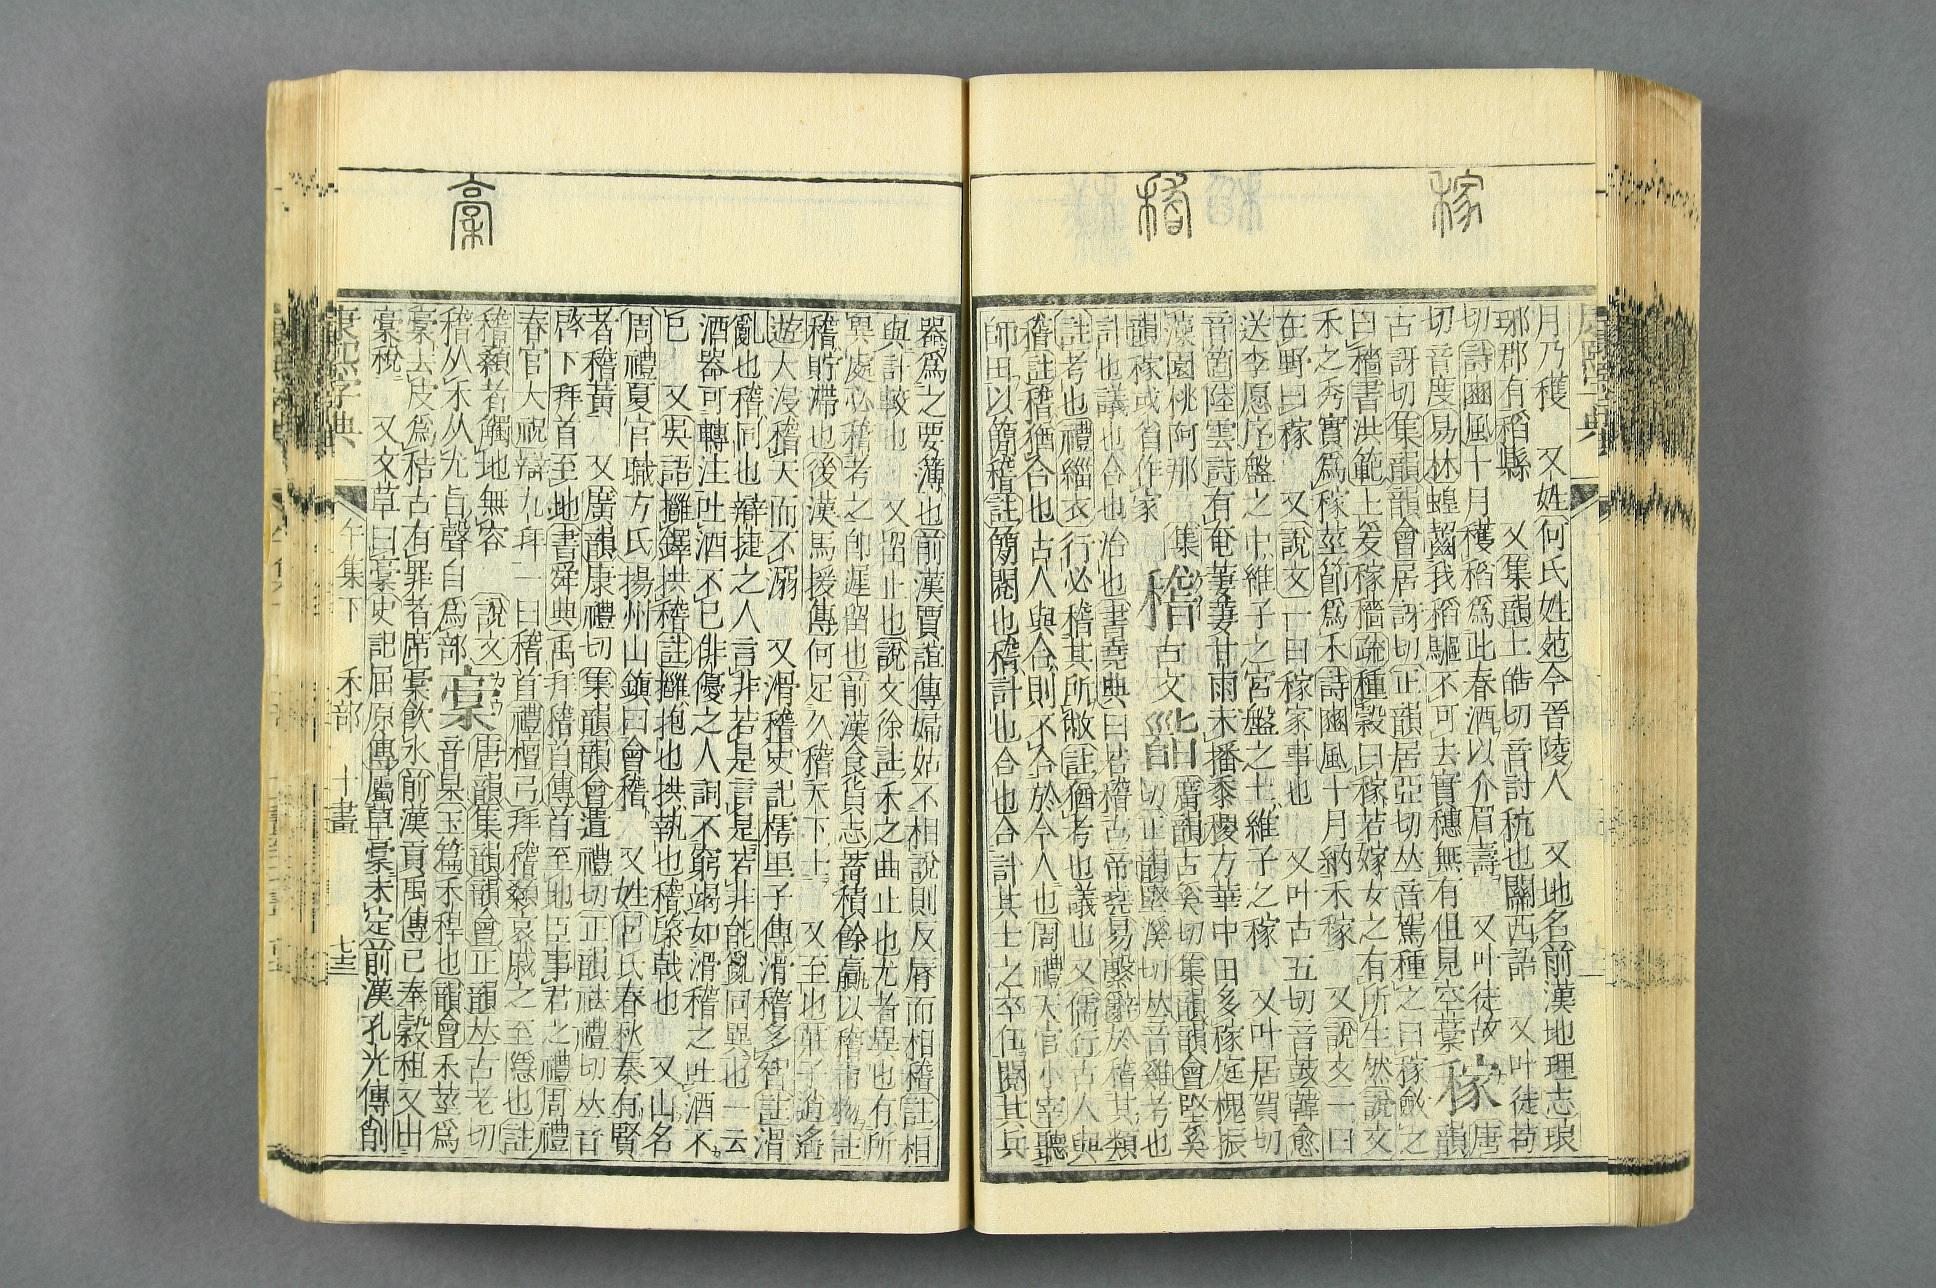 稼
稽
月乃穫　又姓何氏姓苑今晉陵人　又地名前漢地理志琅
琊郡有稻縣　又集韻土皓切音討秔也關西語　又叶徒苟
切詩豳風十月穫稻爲此春酒以介眉壽　又叶徒故　稼　唐韻
切音度易林蝗齧我稻驅不可去實穗無有但見空藁
古訝切集韻韻會居訝切正韻居亞切𠀤音駕種之曰稼斂之
曰穡書洪範土爰稼穡疏種穀曰稼若嫁女之有所生然說文
禾之秀實爲稼莖節爲禾詩豳風十月納禾稼　又說文一曰
在野曰稼　又說文一曰稼家事也　又叶古五切音鼓韓愈
送李愿序盤之中維子之宮盤之土維子之稼　又叶居賀切
音箇陸雲詩有奄萋萋甘雨未播黍稷方華中田多稼庭槐振
藻園桃阿那　集韻稼或省作家　稽　古文　廣韻古奚切集韻韻會堅奚切正韻堅溪切𠀤音雞考也
計也議也合也治也書堯典曰若稽古帝堯易繫辭於稽其類
註考也禮緇衣行必稽其所敝註猶考也議也又儒行古人與
稽註稽猶合也古人與合則不合於今人也周禮天官小宰聽
師田以簡稽註簡閱也稽計也合也合計其士之卒伍閱其兵
器爲之要簿也前漢賈誼傳婦姑不相說則反脣而相稽註相
與計較也　又留止也說文徐註禾之曲止也尤者異也有所
異處必稽考之卽遲留也前漢食貨志蓄積餘贏以稽市物註
稽貯滯也後漢馬援傳何足久稽天下士　又至也莊子逍遙
遊大浸稽天而不溺　又滑稽史記樗里子傳滑稽多智註滑
亂也稽同也辯捷之人言非若是言是若非能亂同異也一云
酒器可轉注吐酒不已俳優之人詞不窮竭如滑稽之吐酒不
已　又吳語擁鐸拱稽註擁抱也拱執也稽棨戟也　又山名
周禮夏官職方氏揚州山鎭曰會稽　又姓呂氏春秋秦有賢
者稽黃　又廣韻康禮切集韻韻會遣禮切正韻袪禮切𠀤音
啓下拜首至地書舜典禹拜稽首傳首至地臣事君之禮周禮
春官大祝辯九拜一曰稽首禮檀弓拜稽顙哀戚之至隱也註
稽顙者觸地無容　說文稽从禾从尤旨聲自爲部　稾　唐韻集韻韻會正韻𠀤古老切音杲玉篇禾稈也韻會禾莖爲
稾去皮爲秸古有罪者席稾飮水前漢貢禹傳已奉穀租又出
稾稅　又文草曰稾史記屈原傳屬草稾未定前漢孔光傳削
康熙字典　午集下　禾部　十畫　七三